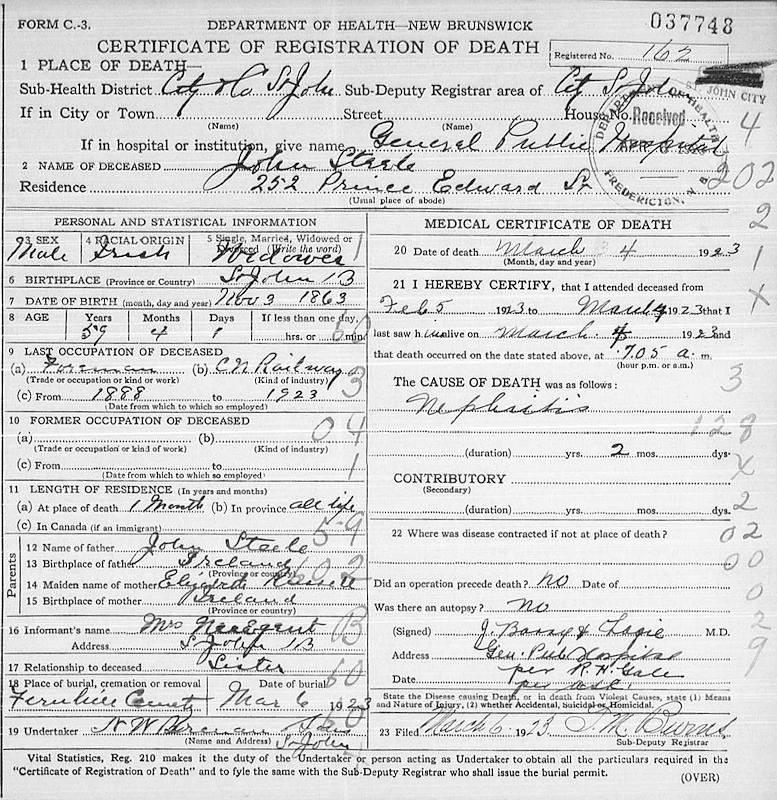 FORM C.-3.
DEPARTMENT OF HEALTH—NEW BRUNSWICK
037748
CERTIFICATE OF REGISTRATION OF DEATH
Registered No. 162
1 PLACE OF DEATH—
ST. JOHN CITY
Sub-Health District City & Co St John Sub-Deputy Registrar area of City St John
If in City or Town Street House No.
(Name) (Name)
DEPARTMENT OF HEALTH
Received
FREDERICTON, N. B.
If in hospital or institution, give name General Public Hospital
2 NAME OF DECEASED John Steele
Residence 252 Prince Edward St
(Usual place of abode)
4
202
2
1
X
PERSONAL AND STATISTICAL INFORMATION
3 SEX 4 RACIAL ORIGIN 5 Single, Married, Widowed or Divorced (Write the word)
Male Irish Widower
6 BIRTHPLACE (Province or Country) St John NB
7 DATE OF BIRTH (month, day and year) Nov 3 1863
8 AGE Years Months Days If less than one day,
59 4 1 hrs. or min.
9 LAST OCCUPATION OF DECEASED
(a) Foreman (b) C N Railway
(Trade or occupation or kind or work) (Kind of industry)
(c) From 1888 to 1923
(Date from which to which so employed)
10 FORMER OCCUPATION OF DECEASED
(a) (b)
(Trade or occupation or kind of work) (Kind of industry)
(c) From to
(Date from which to which so employed)
11 LENGTH OF RESIDENCE (In years and months)
(a) At place of death 1 Month (b) In province all life
(c) In Canada (if an immigrant)
Parents
12 Name of father John Steele
13 Birthplace of father Ireland
(Province or country)
14 Maiden name of mother Elizabeth
15 Birthplace of mother Ireland
(Province or country)
16 Informant's name Mrs
Address St John NB
17 Relationship to deceased Sister
18 Place of burial, cremation or removal Date of burial
Fernhill Cemety Mar 6 1923
19 Undertaker N W Brenan & Sons
(Name and Address) St John
MEDICAL CERTIFICATE OF DEATH
20 Date of death March 4 1923
(Month, day and year)
21 I HEREBY CERTIFY, that I attended deceased from
Feb 5 1923 to March 4 1923 that I
last saw him alive on March 4 1923 and
that death occurred on the date stated above, at 7.05 a. m.
(hour p.m. or a.m.)
The CAUSE OF DEATH was as follows: 3
Nephritis
128
(duration) yrs. 2 mos. dys.
X
CONTRIBUTORY
(Secondary)
2
(duration) yrs. mos. dys.
22 Where was disease contracted if not at place of death? 02
00
Did an operation precede death? no Date of
0
Was there an autopsy? no
29
(Signed) M.D.
Address Gen. Pub Hospital
per R. H. Gale
Date
State the Disease causing Death, or in death from Violent Causes, state (1) Means
and Nature of Injury, (2) whether Accidental, Suicidal or Homicidal.
23 Filed March 6 1923 T. M. Burns
Sub-Deputy Registrar
Vital Statistics, Reg. 210 makes it the duty of the Undertaker or person acting as Undertaker to obtain all the particulars required in the
"Certificate of Registration of Death" and to fyle the same with the Sub-Deputy Registrar who shall issue the burial permit. (OVER)